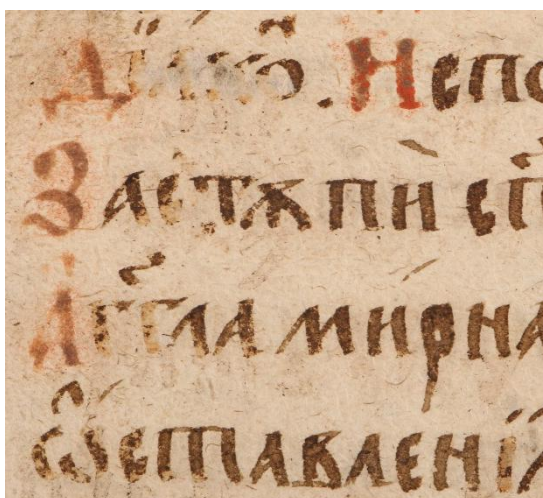 Испо
Застѫпи сп
Аггла мирна
ѡставленїꙗ